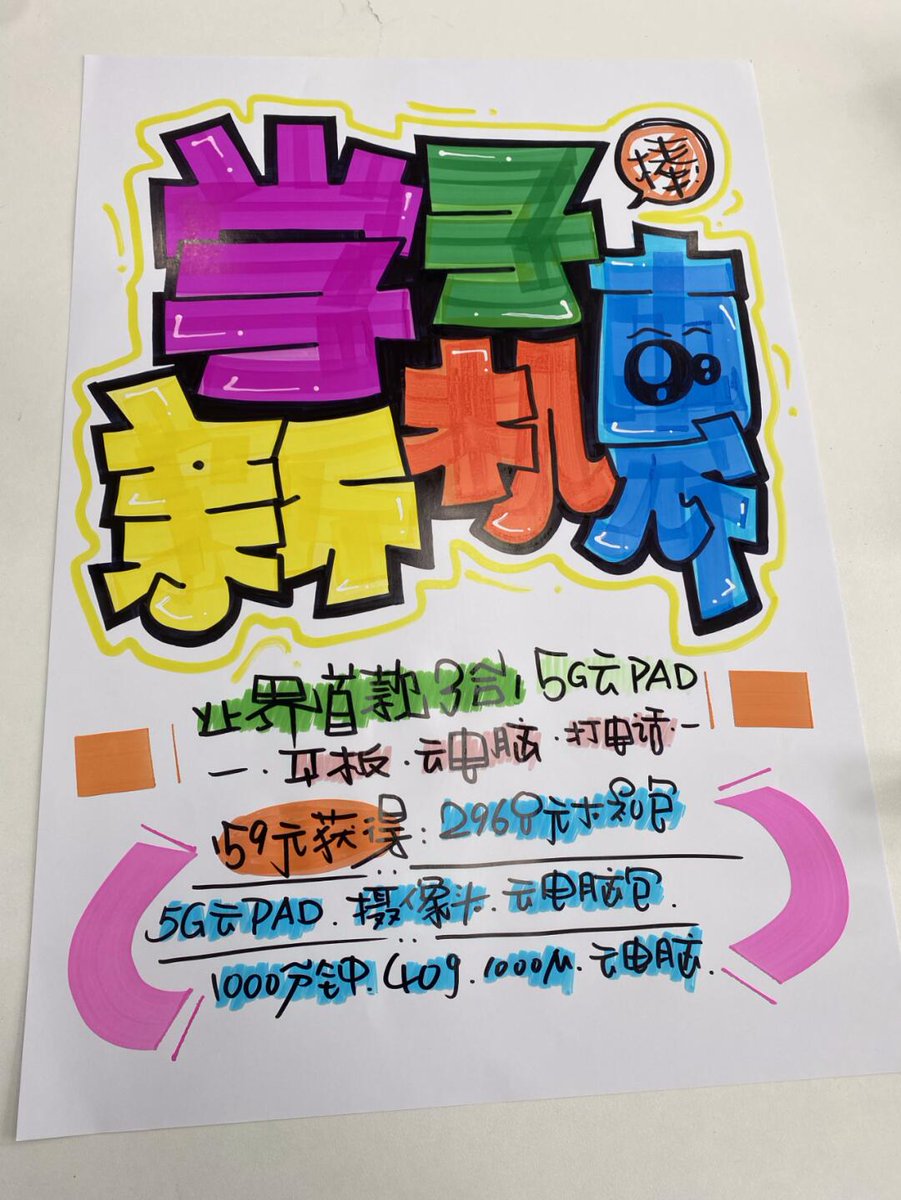 学子
棒
新机
世界首款3合1 5G云PAD
一·平板·云电脑·打电话·一
159元获得:2968元大礼包
5G云PAD.摄像头.云电脑包.
1000分钟.40g.1000M.云电脑.